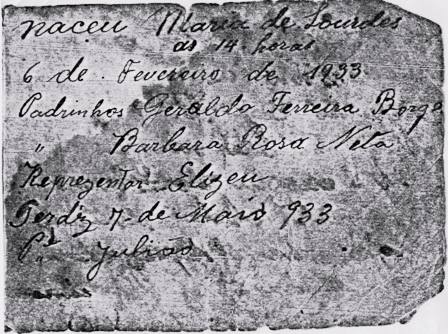 naceu Maria de Lourdes
as 14 horas
6 de Fevereiro de 1933
Padrinhos Geraldo Ferreira Borge
" Barbara Rosa Neta
Reprezentor Elizeu
Perdiz 7 de Maio 933
Pe Julião